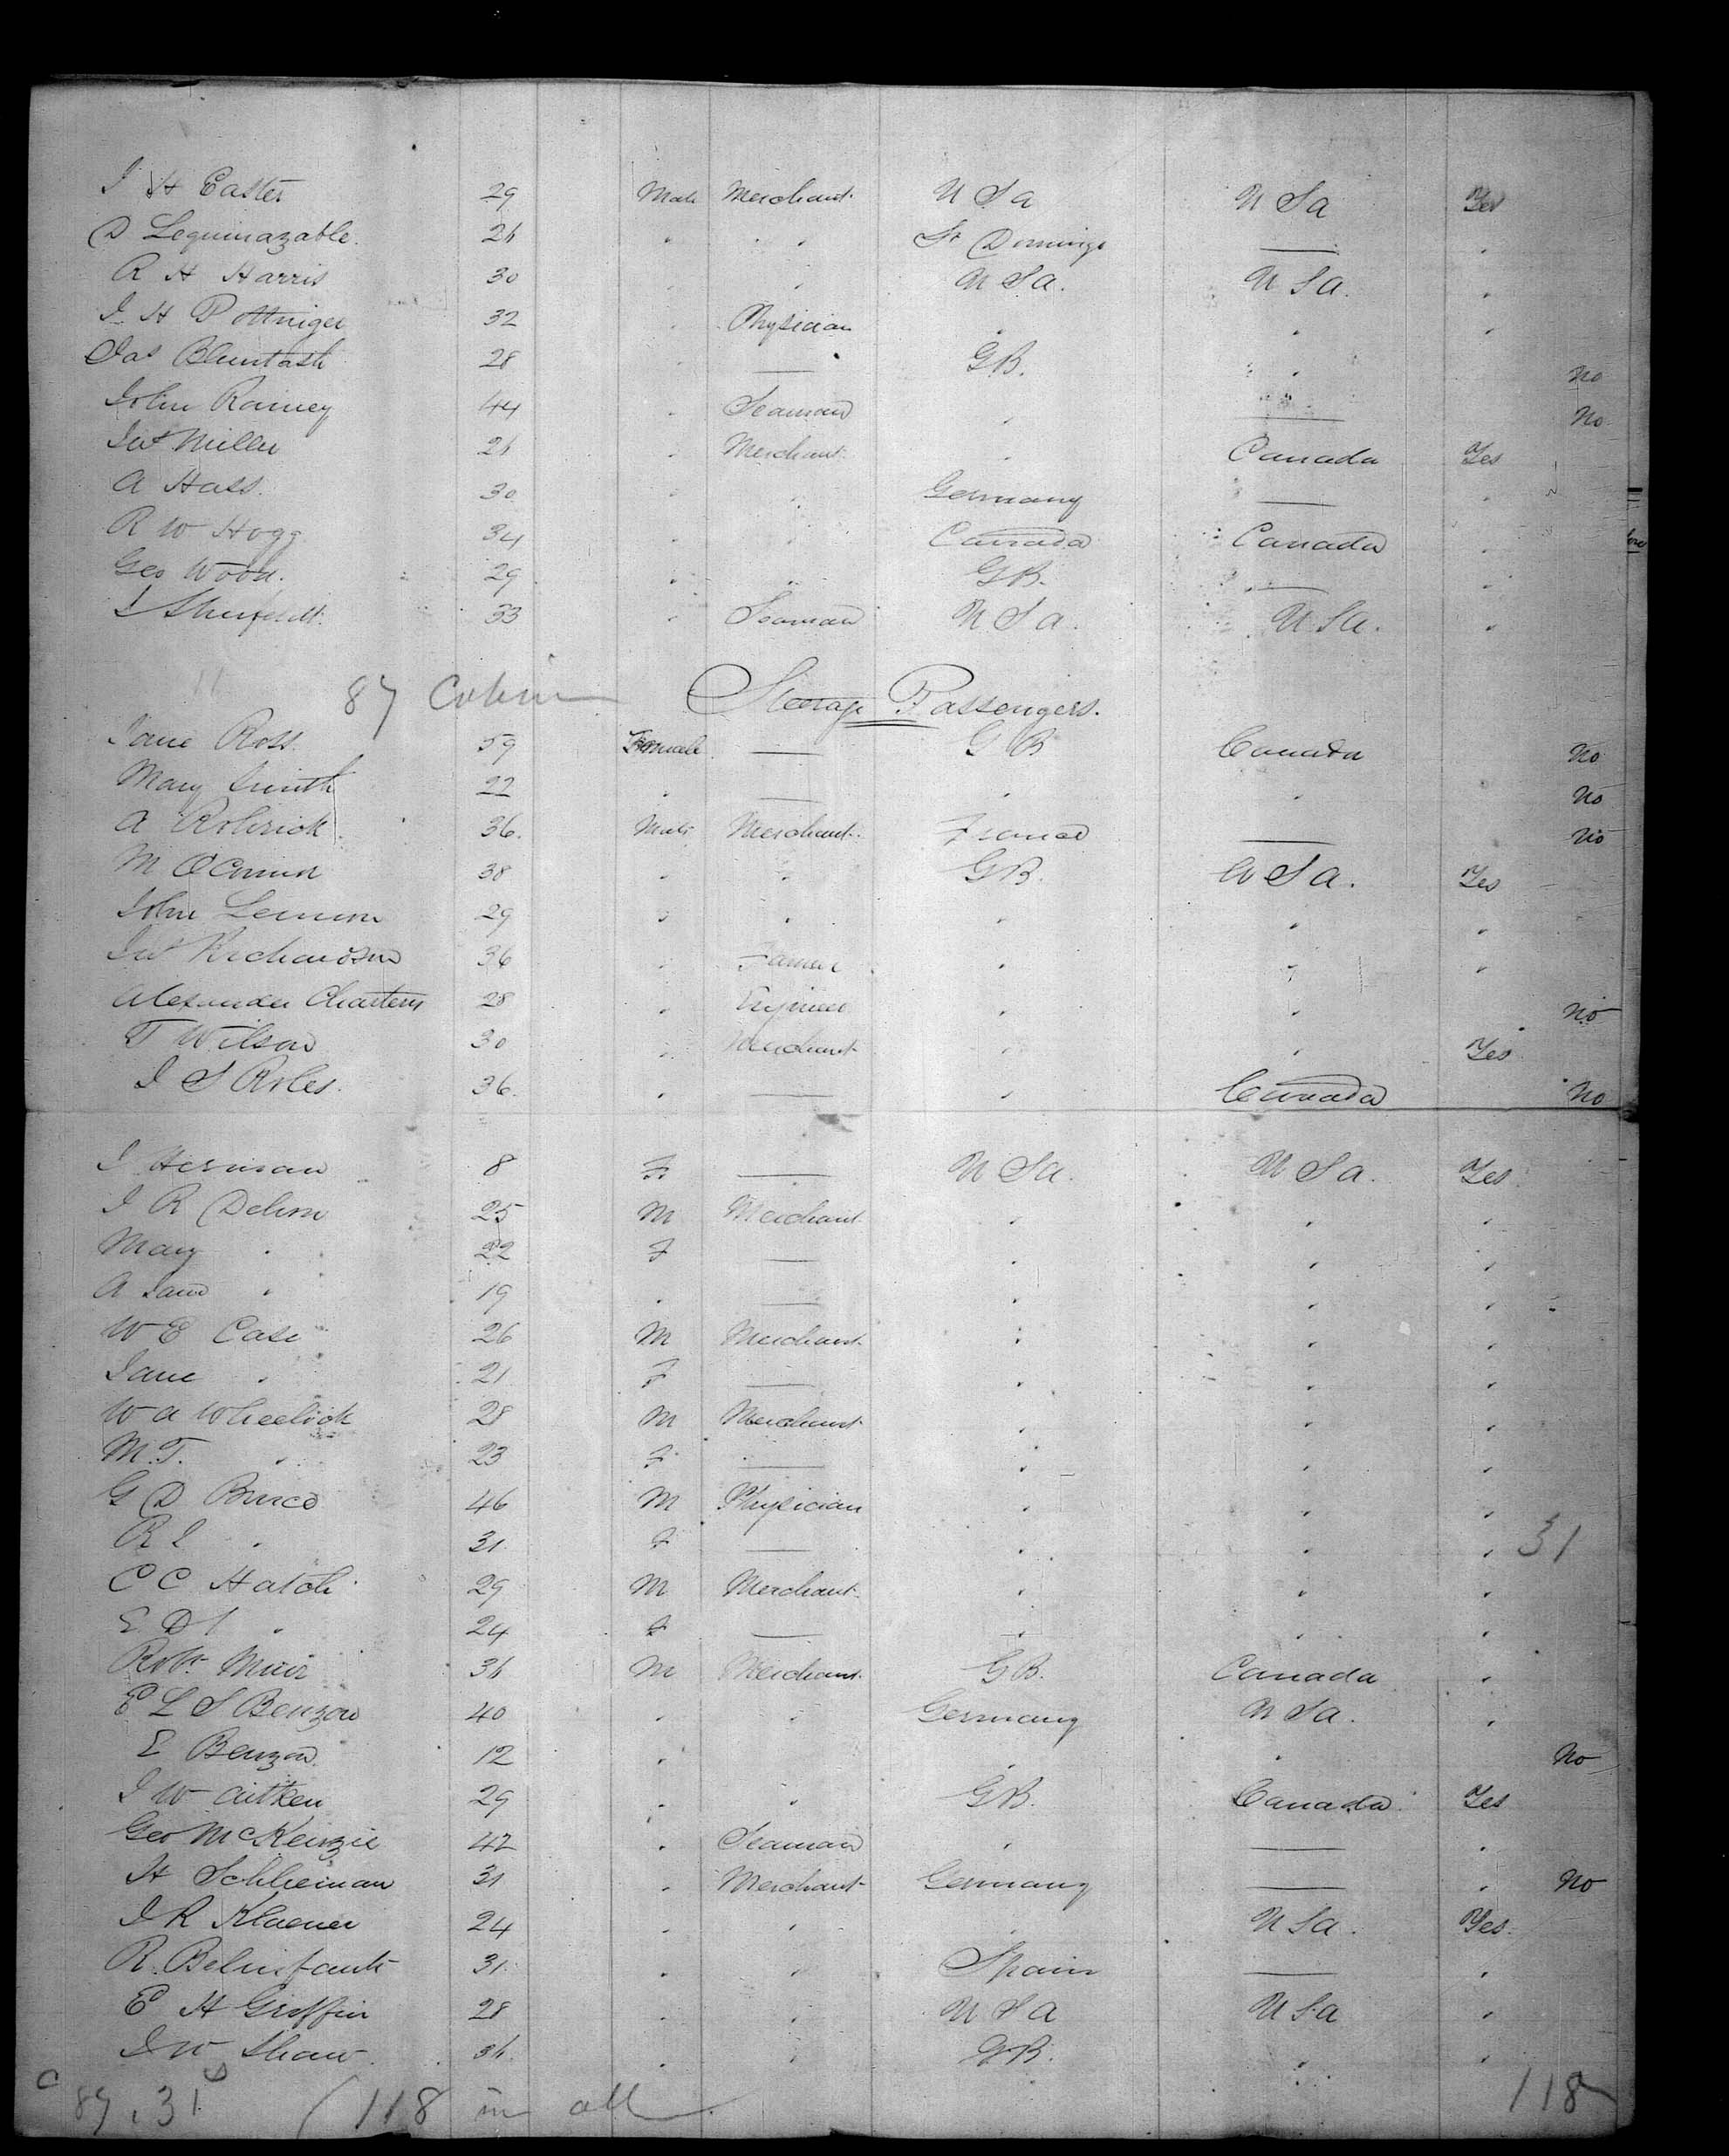 J H Easter 29 Male Merchant U S A U S A Yes
D Leguinazable 26 " " " St Domingo — "
R H Harris 30 " " U S A. U S A. "
J. H Pottinger 32 " Physician " " "
Jas 28 " — G B. " No
John Rainey 44 " Seaman " — No
Jas Miller 26 " Merchant " Canada Yes
A Hass. 30 " " Germany — "
R W Hogg 34 " " Canada Canada "
Geo Wood. 29 " " G B. — "
J 33 " Seaman U S A. U S A. "
87 Cabin Steerage Passengers.
Jane Ross. 59 Female — G B Canada No
Mary Smith 22 " — " " No
A 36. Male Merchant France — No
M O'Connor 38 " " G B. U S A. Yes
John Lemon 29 " " " " "
Jas Richardson 36 " Farmer " " "
Alexander Charters 28 " Engineer " " No
T Wilson 30 " Merchant " " Yes
J S Roles. 36. " — " Canada No
J Herman 8 F — U S A. U S A. Yes
J R Delson 25 M Merchant " " "
Mary " 22 F — " " "
A Jane " 19 " — " " "
W E Case 26 M Merchant " " "
Jane " 21 F — " " "
W A Wheelock 28 M Merchant " " "
M. T. " 23 F — " " "
G D Bruce 46 M Physician " " "
R L " 31 F — " " " 31
C C Hatch 29 M Merchant " " "
E D " 24 F — " " "
Robt Muir 36 M Merchant G B. Canada "
E L S Benzon 40 " " Germany U S A. "
E Benzon 12 " " " No
J W Aitken 29 " " G B. Canada Yes
Geo McKenzie 42 " Seaman " — "
H Schlieman 31 " Merchant Germany — " No
J R Klaener 24 " " " U S A. Yes
R. Belinfante 31. " " Spain — "
E H Griffin 28 " " U S A U S A "
J W Shaw 36 " " G B. " "
C 87, 31 S (118 in all 118